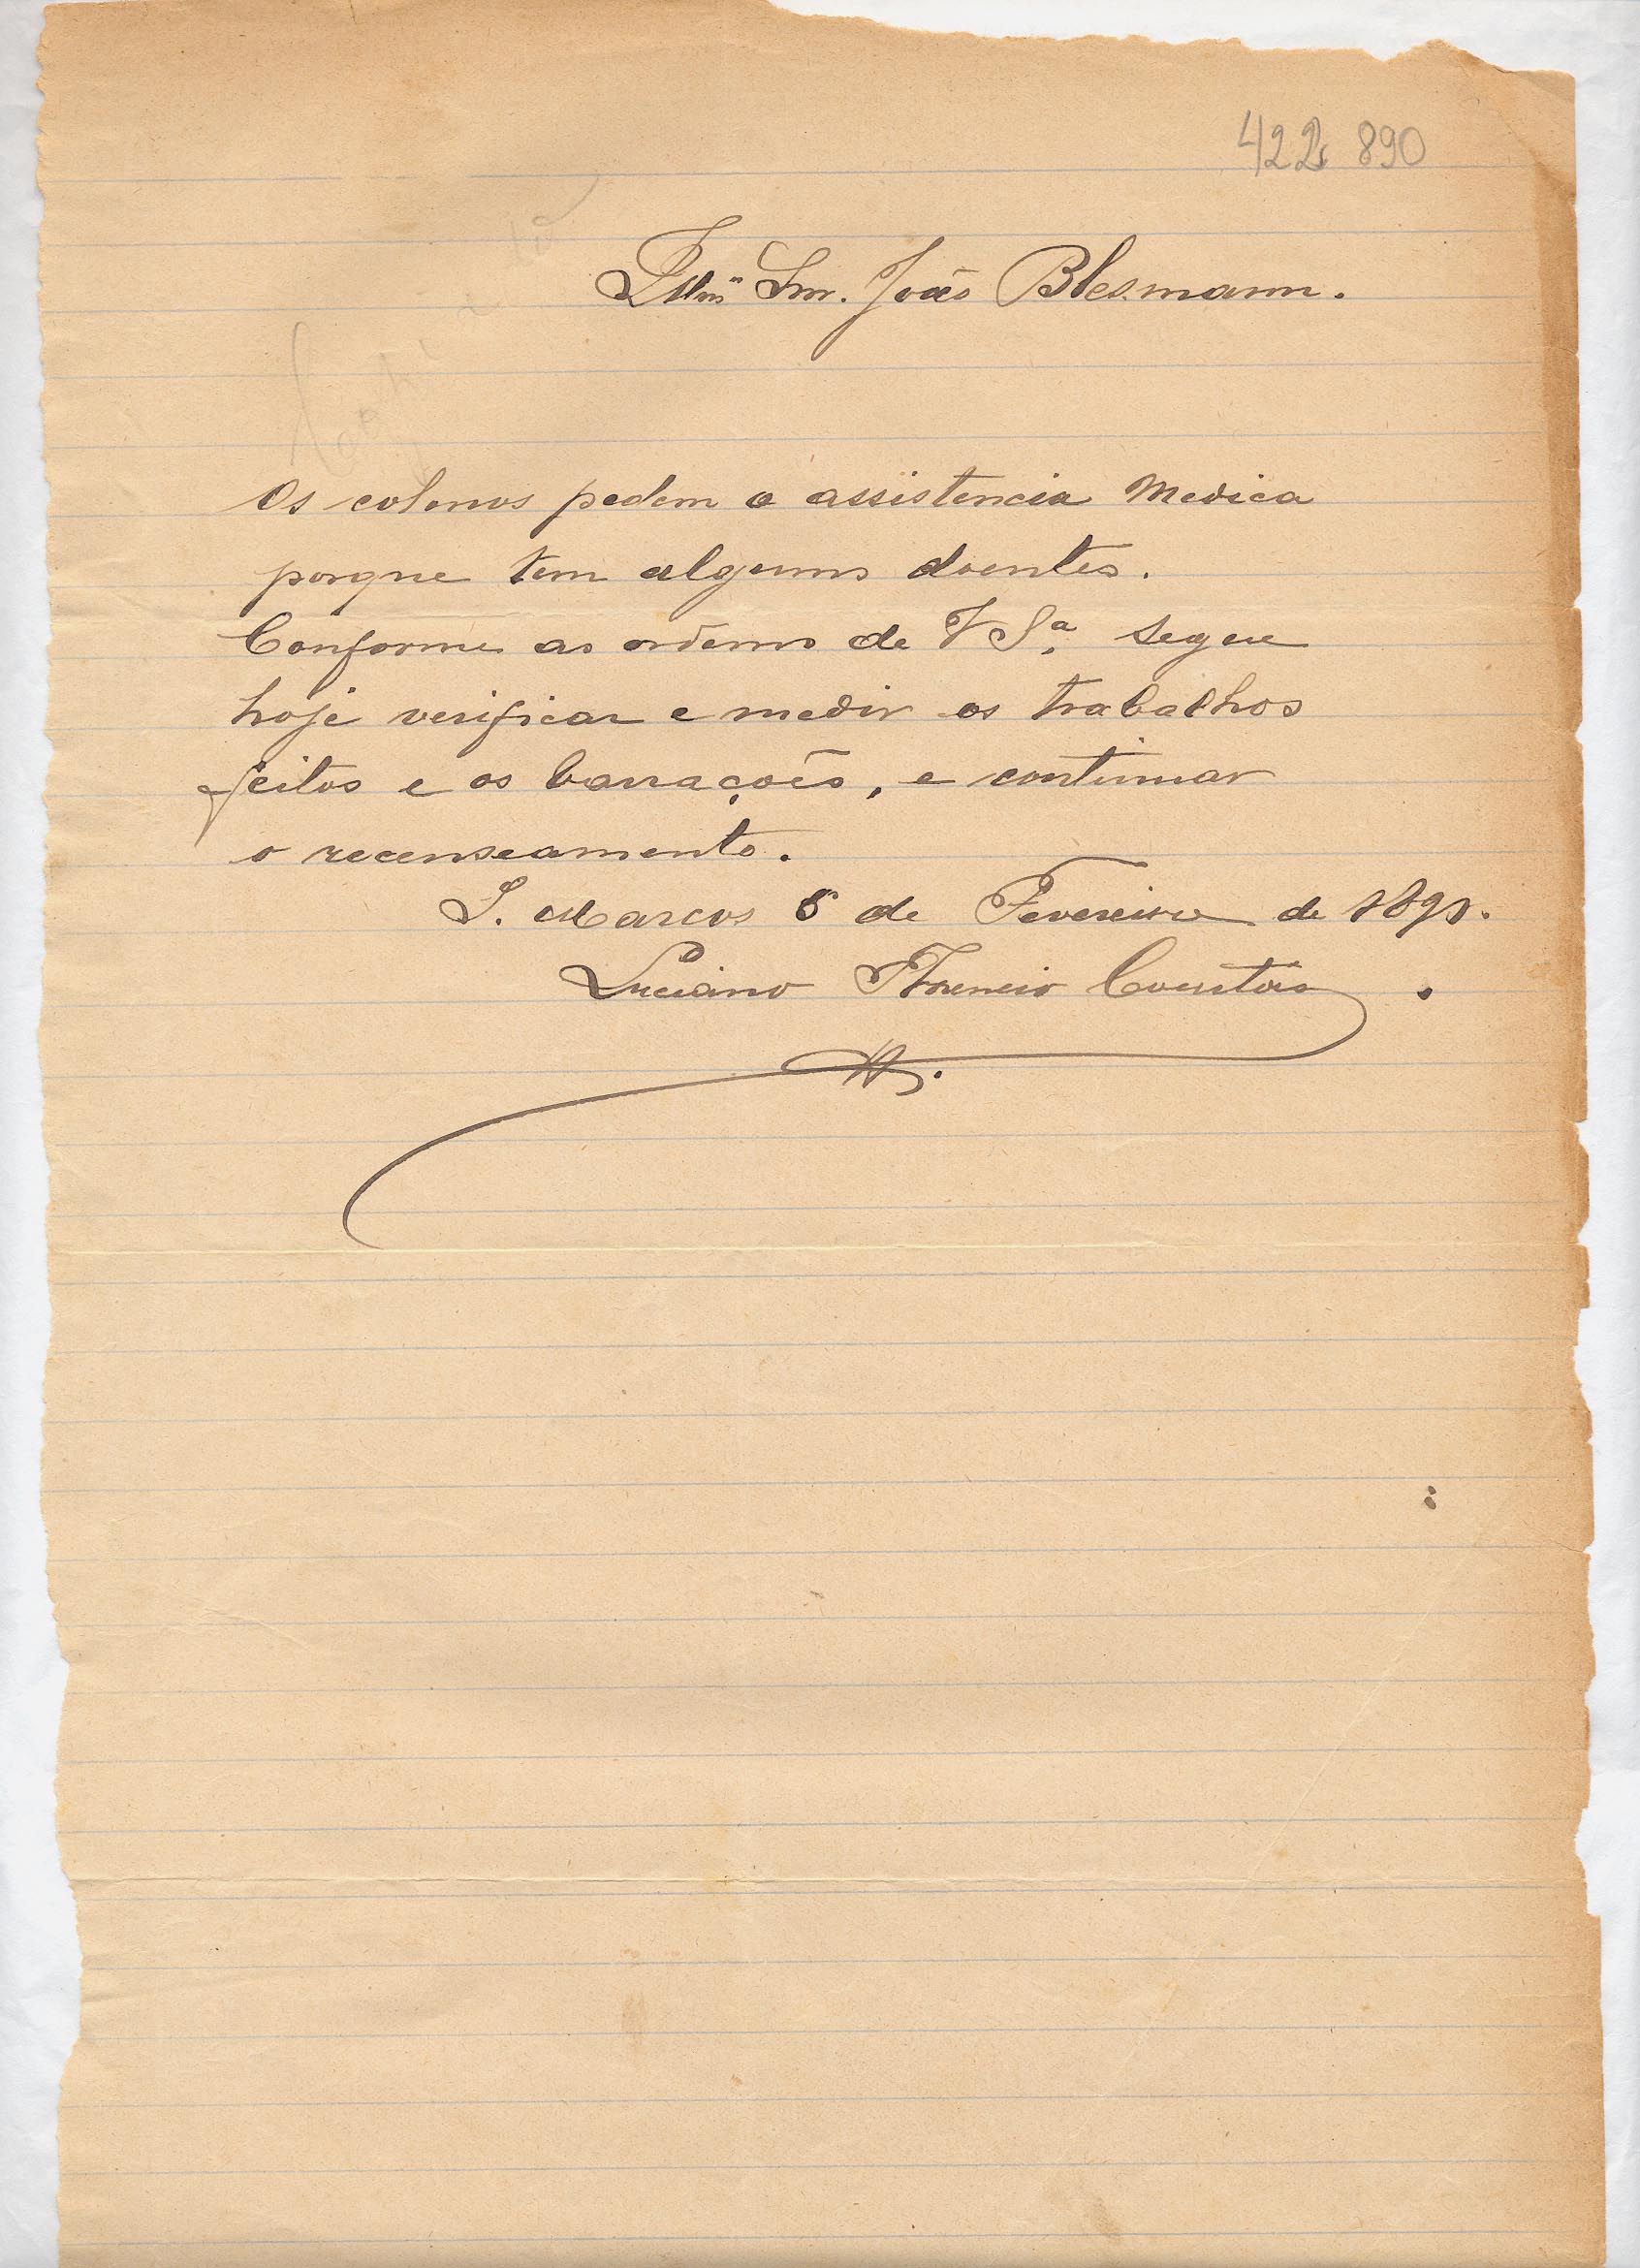 422 890
Illmº Snr. João Blesmann.
Os colonos pedem a assistencia Medica
porque tem alguns doentes.
Conforme as ordens de V Sª. segue
hoje verificar e medir os trabalhos
feitos e os barracoẽs, e continuar
o recenseamento.
S. Marcos 8 de Fevereiro de 1891.
Luciano